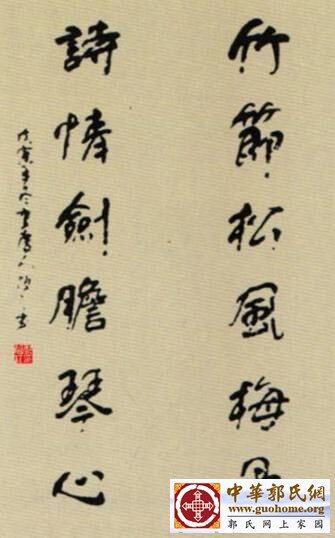 竹節松風梅
詩情劍膽琴心
戊寅年冬
中華郭氏網
www.guohome.org
郭氏网上家园